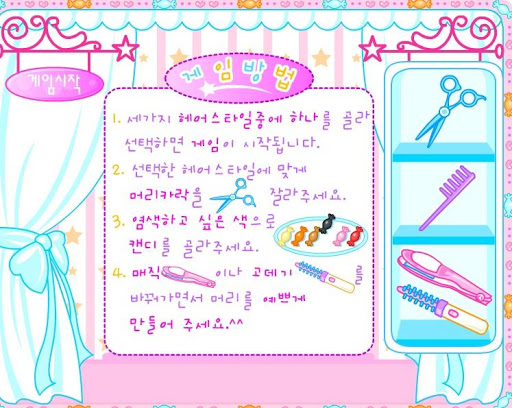 게임시작
게임방법
1. 세가지 헤어스타일중에 하나를 골라
선택하면 게임이 시작됩니다.
2. 선택한 헤어스타일에 맞게
머리카락을 잘라주세요.
3. 염색하고 싶은 색으로
캔디를 골라주세요.
4. 매직 이나 고데기 를
바꿔가면서 머리를 예쁘게
만들어 주세요.^^